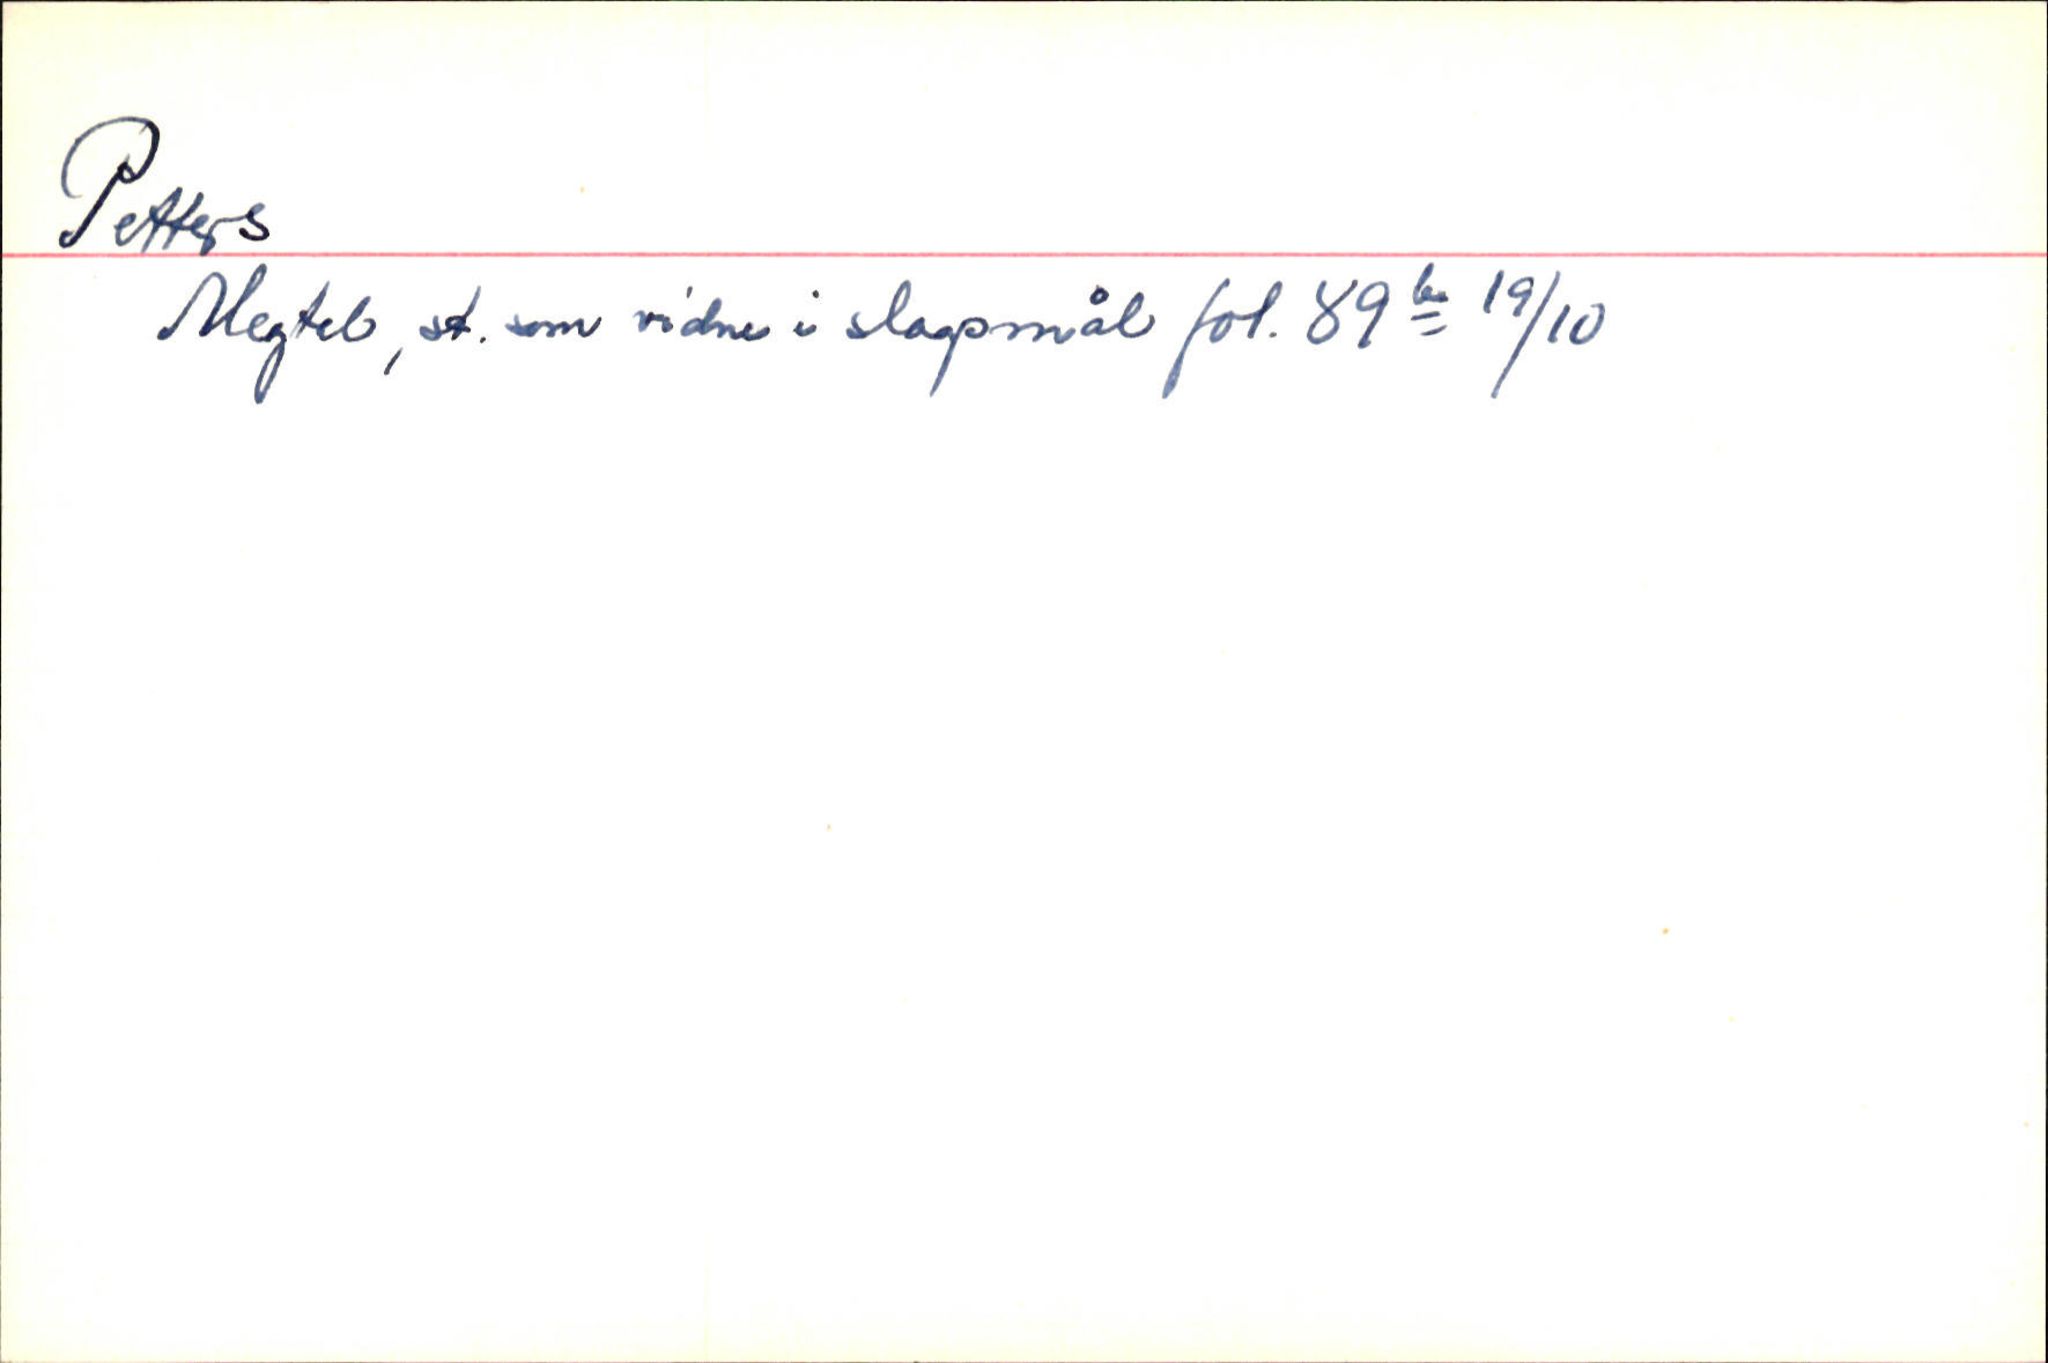 Petters
Megtel, st. som vidne i slagsmål fol. 89 b 19/10